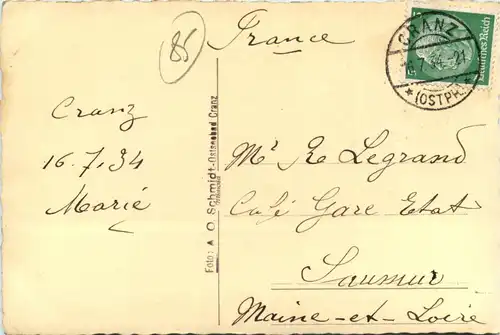 85
France
CRANZ
16.7.34.-21
* (OSTPR.)
Deutsches Reich
Cranz
16.7.34
Marie
Foto: A. O. Schmidt-Ostseebad Cranz
Mr R Legrand
Café Gare Etat
Saumur
Maine-et-Loire